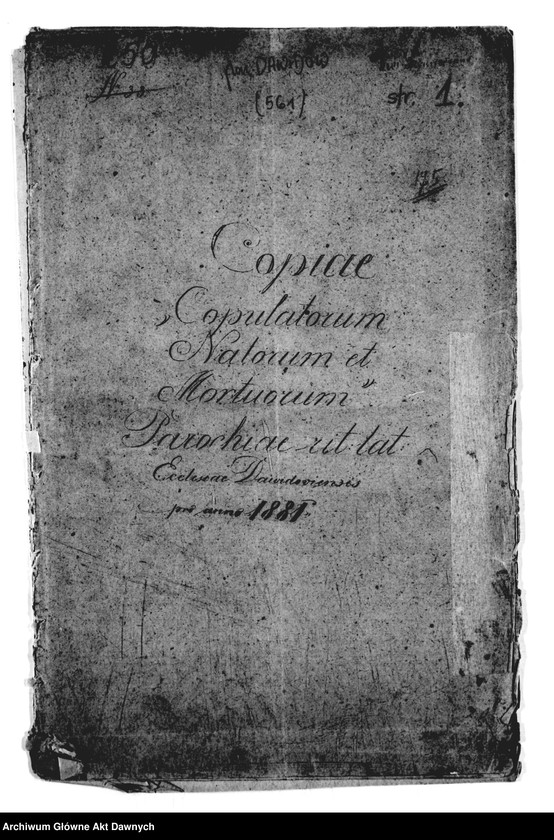 par. DAWIDÓW
(561)
str. 1.
175
Copiae
„Copulatorum
Natorum et
Mortuorum”
Parochiae rit lat
Ecclesiae Davidoviensis
pro anno 1881.
Archiwum Główne Akt Dawnych